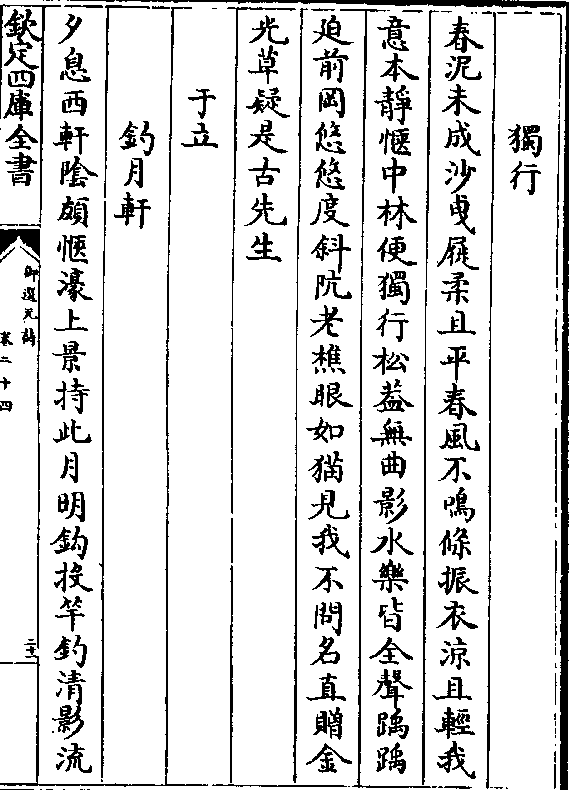 獨行
春泥未成沙曳屣柔且平春風不鳴條振衣涼且輕我
意本靜愜中林便獨行松蓋無曲影水樂皆全聲踽踽
廹前岡悠悠度斜阬老樵眼如猫見我不問名直贈金
光草疑是古先生
于立
釣月軒
夕息西軒陰頗愜濠上景持此月明鈎投竿釣清影流
欽定四庫全書
御選元詩
卷二十四